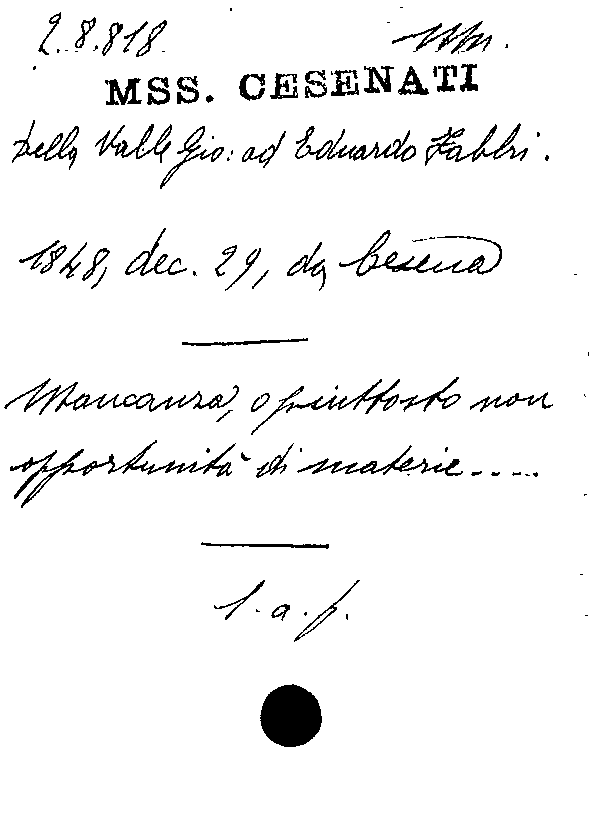 2.8.818
MSS. CESENATI
Della Valle Gio: ad Eduardo Fabbri.
1848, dec. 29, da Cesena
Mancanza, o piuttosto non
opportunità di materie.....
l. a. f.